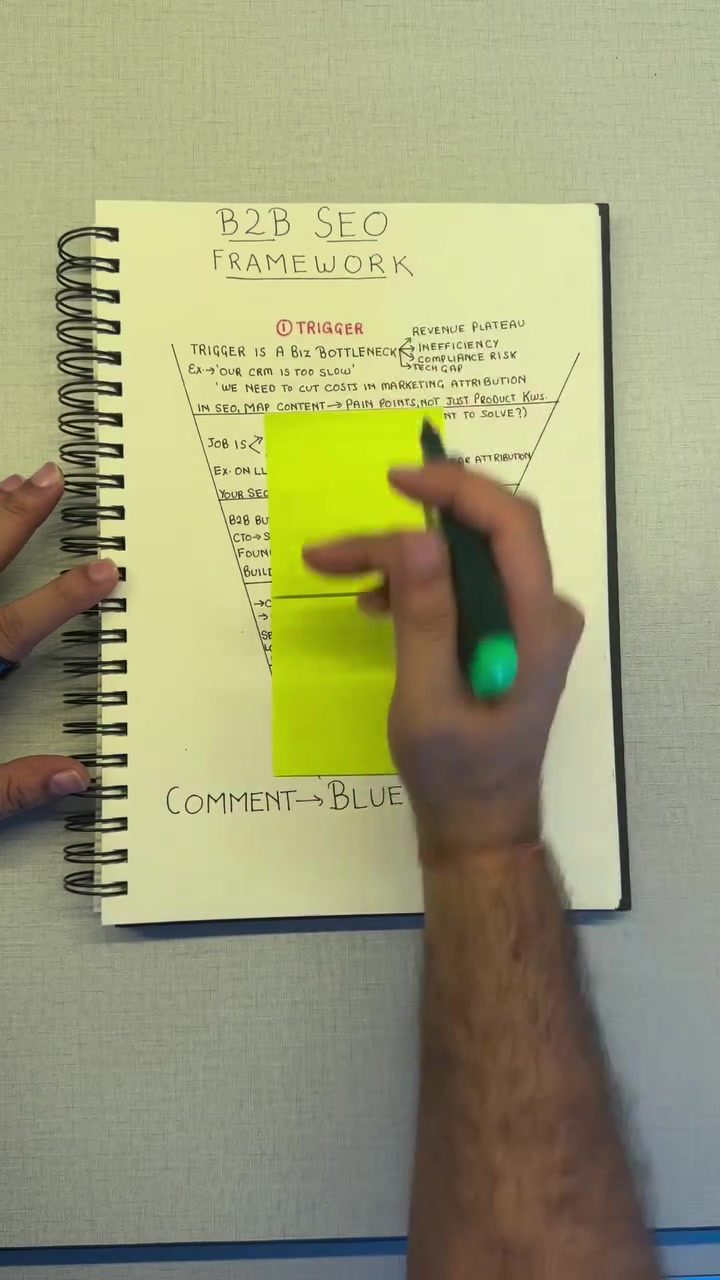 B2B SEO
FRAMEWORK
① TRIGGER
TRIGGER IS A BIZ BOTTLENECK
REVENUE PLATEAU
INEFFICIENCY
COMPLIANCE RISK
TECH GAP
EX→'OUR CRM IS TOO SLOW'
'WE NEED TO CUT COSTS IN MARKETING ATTRIBUTION
IN SEO, MAP CONTENT→PAIN POINTS, NOT JUST PRODUCT KWS.
TO SOLVE?)
JOB IS
EX- ON
ATTRIBUTION
YOUR
B2B
CTO→
COMMENT→BLUE